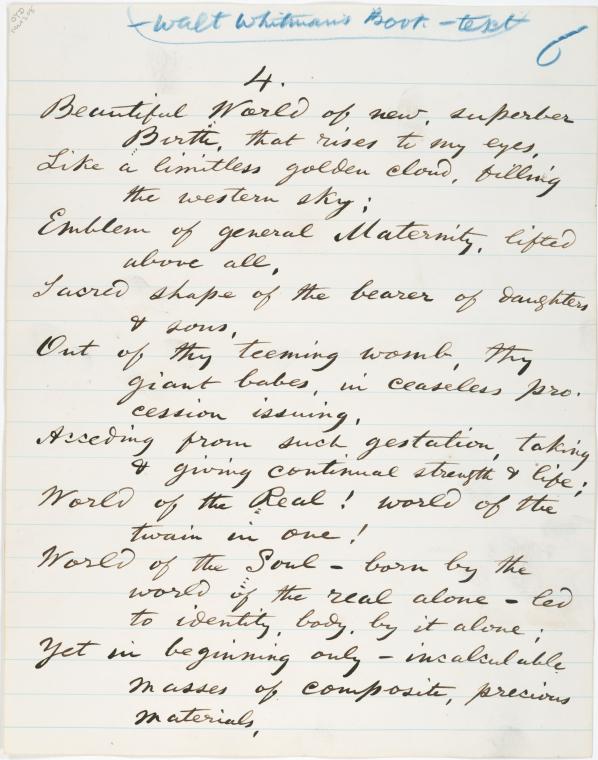 - Walt Whitman's Book - text
6
4.
Beautiful World of new, superber
Birth, that rises to my eyes,
Like a limitless golden cloud, filling
the western sky;
Emblem of general Maternity, lifted
above all,
Sacred shape of the bearer of daughters
& sons,
Out of thy teeming womb, thy
giant babes, in ceaseless pro-
cession issuing,
Acceding from such gestation, taking
& giving continual strength & life;
World of the Real! world of the
twain in one!
World of the Soul - born by the
world of the real alone - led
to identity, body, by it alone;
Yet in beginning only - incalculable
masses of composite, precious
materials,